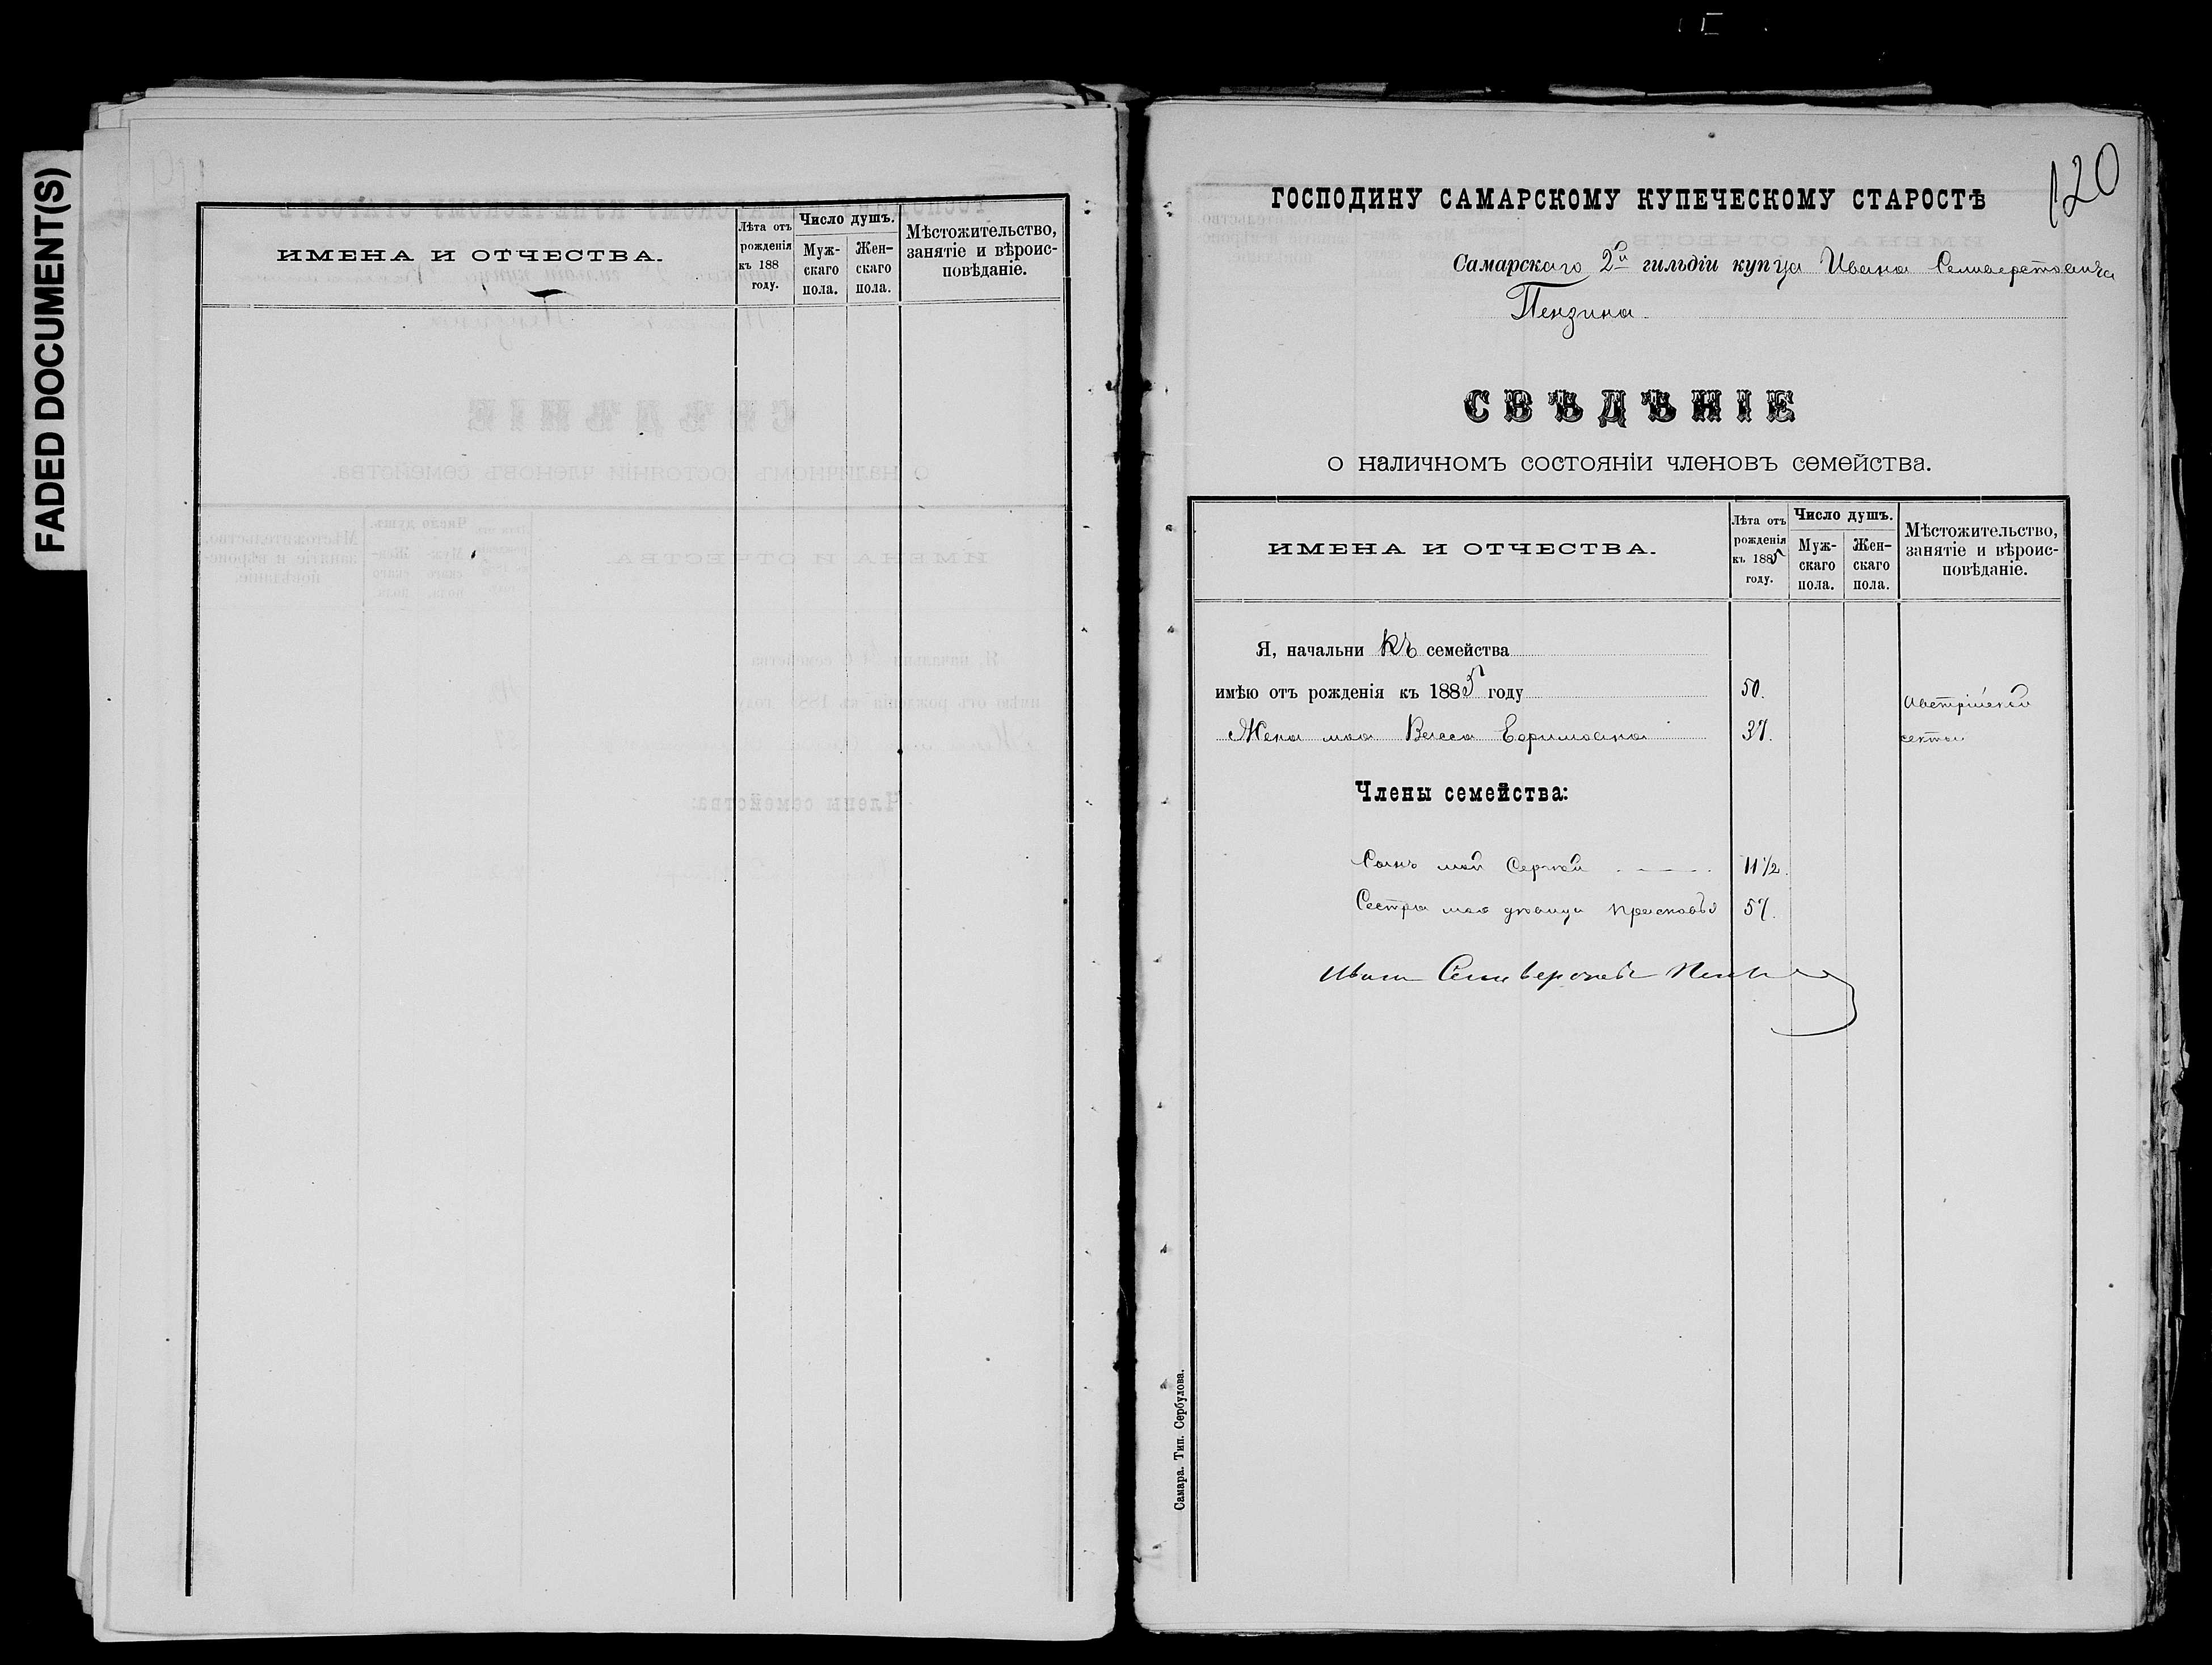 FADED DOCUMENT(S)
ИМЕНА И ОТЧЕСТВА.
Лѣта отъ рожденія къ 188 году.
Число душъ.
Муж-скаго пола.
Жен-скаго пола.
Мѣстожительство, занятіе и вѣроис-повѣданіе.
120
ГОСПОДИНУ САМАРСКОМУ КУПЕЧЕСКОМУ СТАРОСТѢ
Самарскаго 2й гильдіи купца Ивана Селиверстовича
Пензина
СВѢДѢНІЕ
о наличномъ состояніи членовъ семейства.
ИМЕНА И ОТЧЕСТВА.
Лѣта отъ рожденія къ 1885 году.
Число душъ.
Муж-скаго пола.
Жен-скаго пола.
Мѣстожительство, занятіе и вѣроис-повѣданіе.
Я, начальникъ семейства
имѣю отъ рожденія къ 1885 году 50. Австрійской
Жена моя Васса Ефимовна 37. секты
Члены семейства:
Сынъ мой Сергей 11 1/2.
Сестра моя девица Прасковья 57.
Иванъ
Самара. Тип. Сербулова.